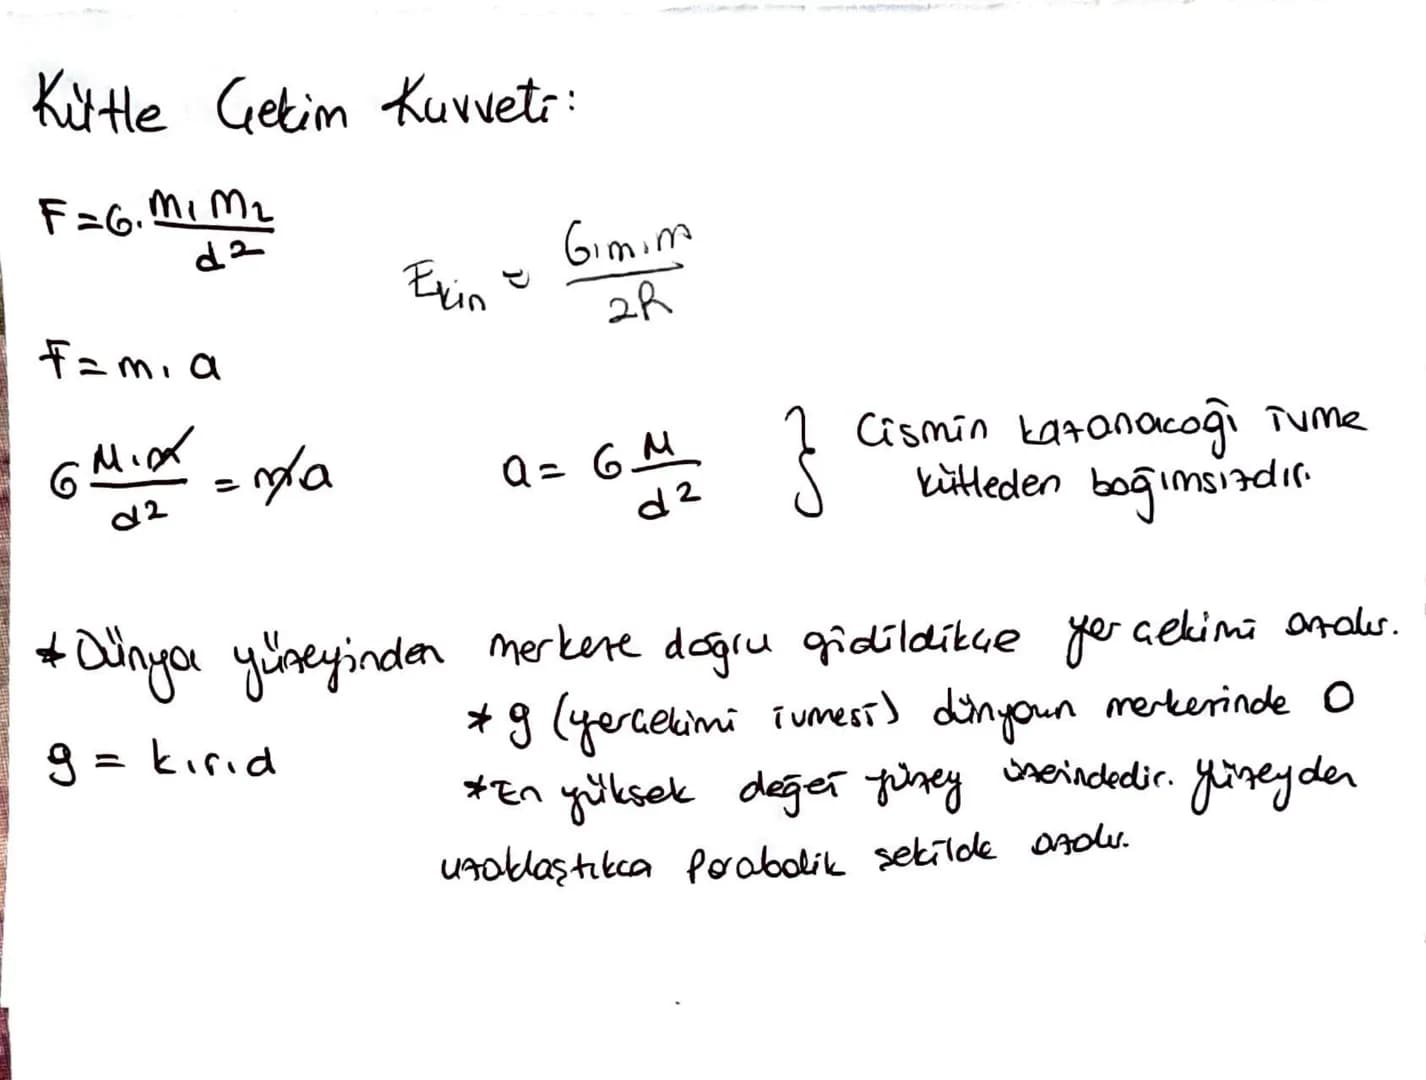 Kütle Çekim Kuvveti:
F = G. m₁ m₂ / d²
Ekin = G.m.m / 2R
F = m. a
G M.m / d² = m a
a = G M / d² } Cismin kazanacağı ivme
kütleden bağımsızdır.
* Dünya yüzeyinden merkeze doğru gidildikçe yer çekimi azalır.
* g (yerçekimi ivmesi) dünyanın merkezinde 0
g = k.r.d
* En yüksek değer yüzey üzerindedir. Yüzeyden
uzaklaştıkca parabolik sekilde azalır.